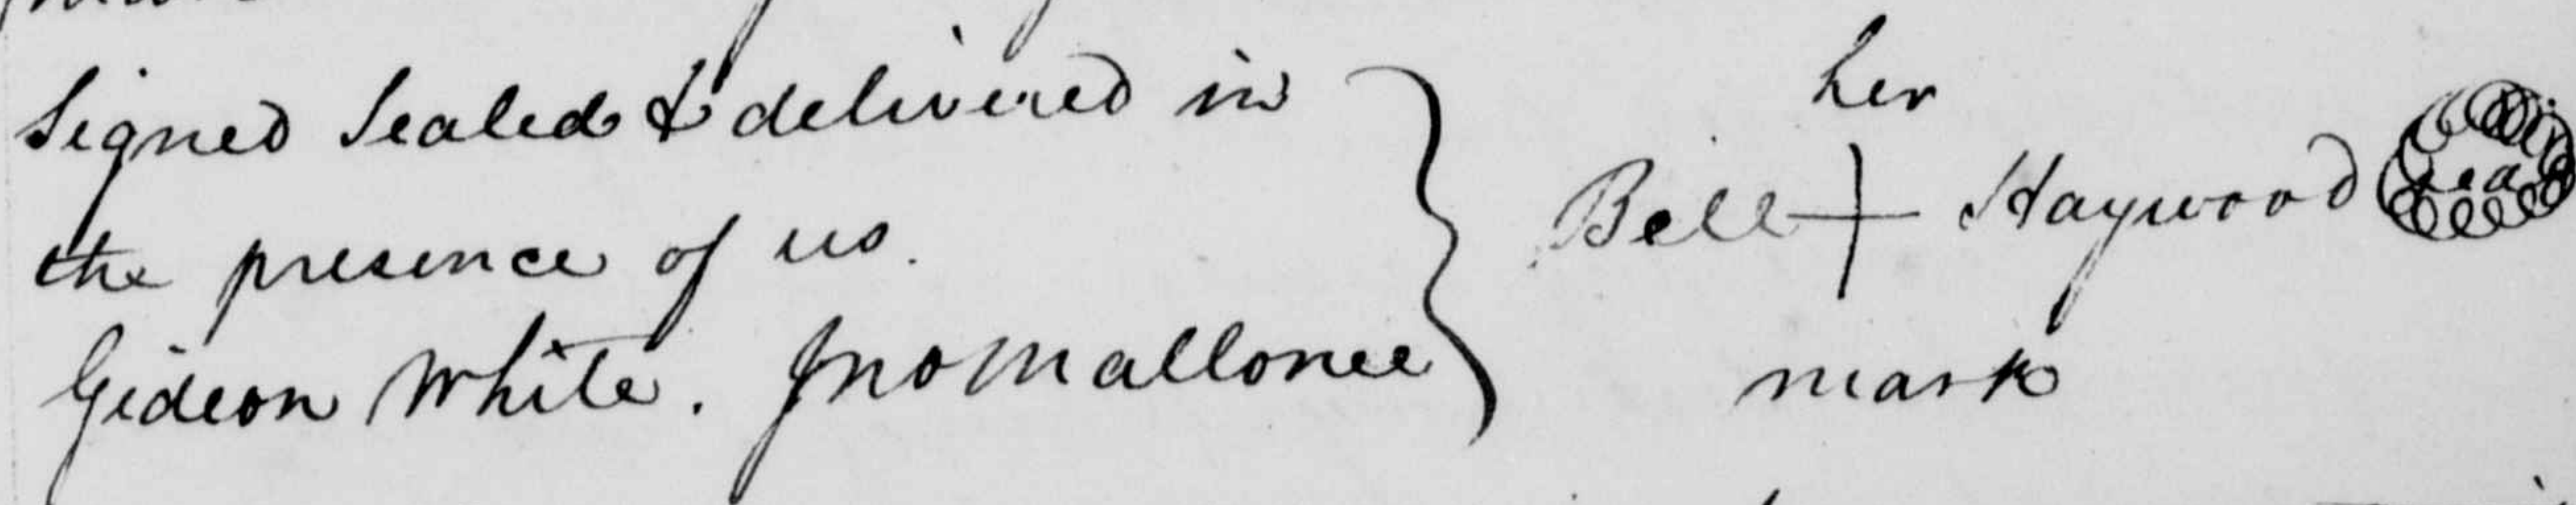 Signed Sealed & delivered in
the presence of us.
Gideon White. Jno Mallonee
her
Bell + Haywood Seal
mark